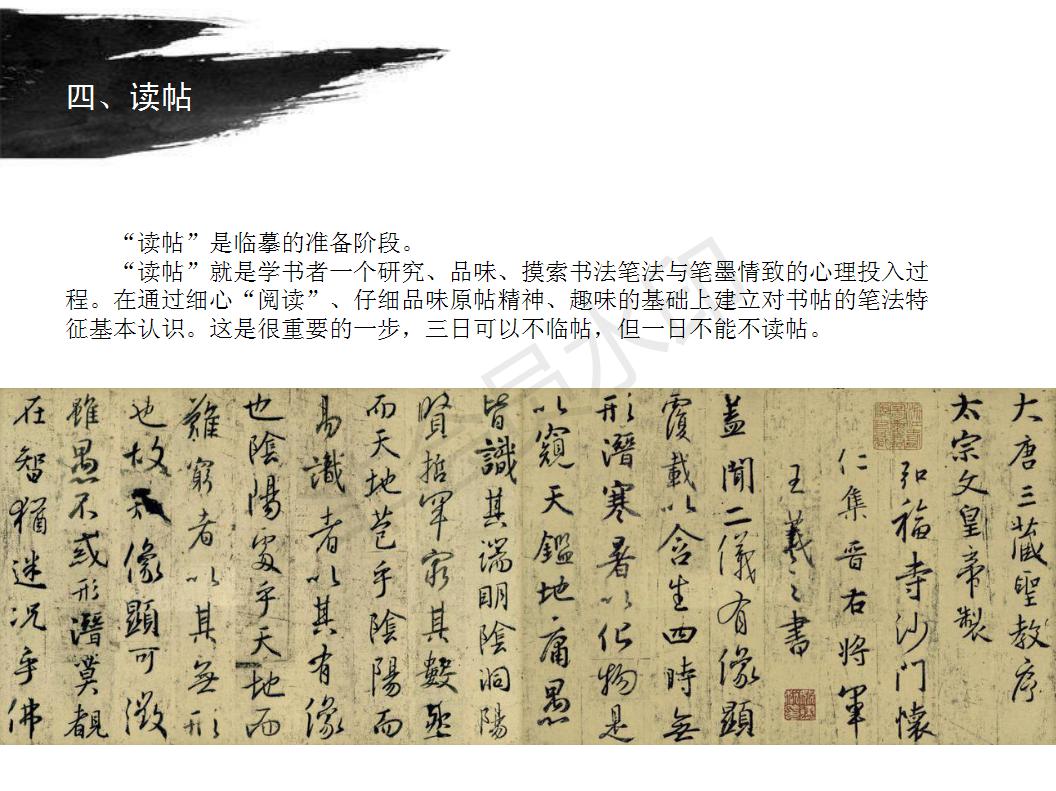 四、读帖
“读帖”是临摹的准备阶段。
“读帖”就是学书者一个研究、品味、摸索书法笔法与笔墨情致的心理投入过
程。在通过细心“阅读”、仔细品味原帖精神、趣味的基础上建立对书帖的笔法特
征基本认识。这是很重要的一步，三日可以不临帖，但一日不能不读帖。
大唐三藏聖教序
太宗文皇帝製
弘福寺沙门懷
仁集晋右將軍
王羲之書
蓋聞二儀有像顯
覆載以含生四時無
形潛寒暑以化物是
以窺天鑑地庸愚
皆識其端明陰洞陽
賢哲罕窮其數然
而天地苞乎陰陽而
易識者以其有像
也陰陽處乎天地而
難窮者以其無形
也故知像顯可徵
雖愚不惑形潛莫覩
在智猶迷况乎佛
会员水印